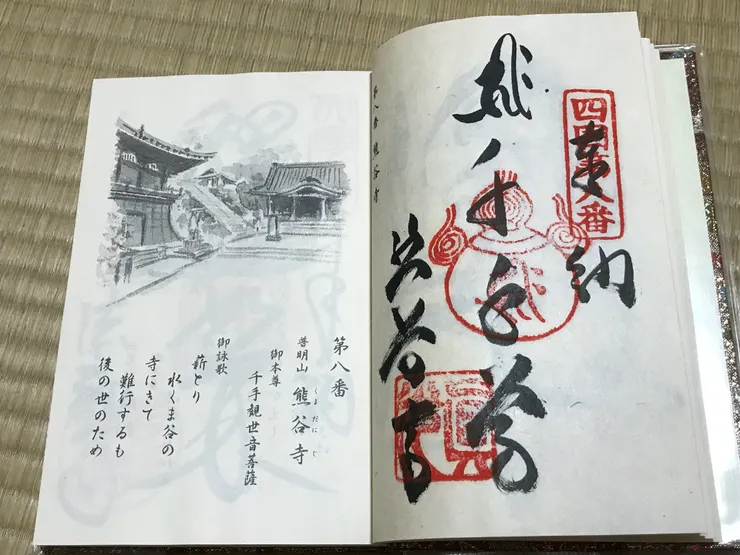 四国第八番
奉納
千手尊
熊谷寺
第八番 熊谷寺
第八番
普明山 熊谷寺
くまだにじ
御本尊
千手觀世音菩薩
御詠歌
薪とり
水くま谷の
寺にきて
難行するも
後の世のため